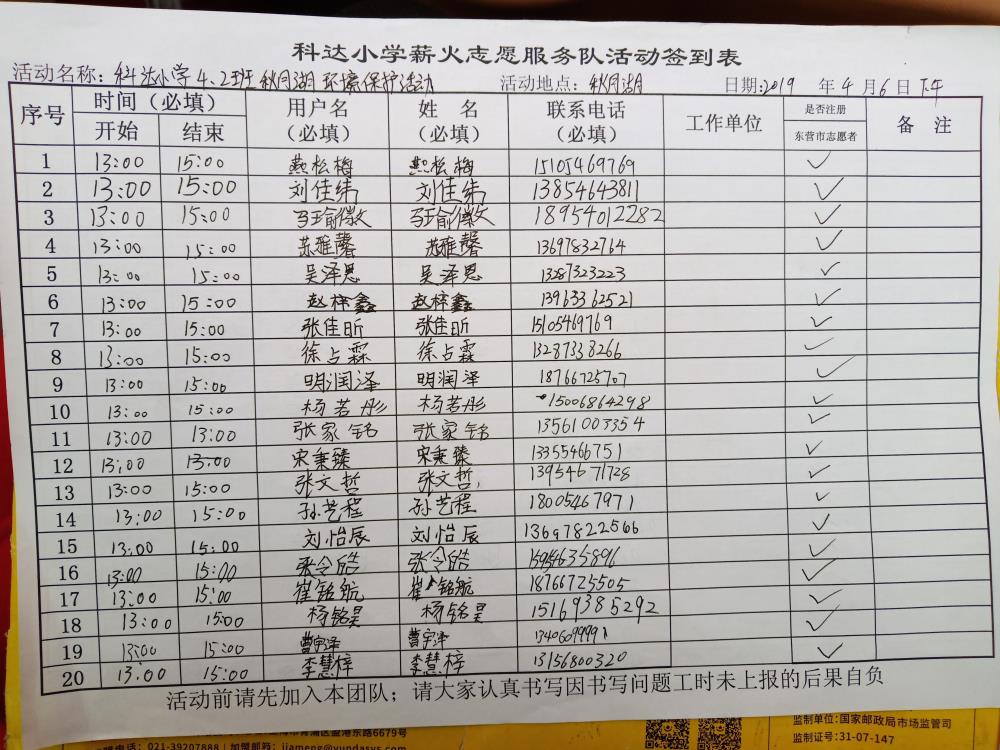 科达小学薪火志愿服务队活动签到表
活动名称: 科达小学4、2班秋月湖环境保护活动 活动地点: 秋月湖 日期:2019 年 4 月 6 日 下午
序号 时间（必填） 用户名（必填） 姓 名（必填） 联系电话（必填） 工作单位 是否注册东营市志愿者 备 注
开始 结束
1 13:00 15:00 燕松梅 燕松梅 15105469769 ✓
2 13:00 15:00 刘佳纬 刘佳纬 13854643811 ✓
3 13:00 15:00 18954012282 ✓
4 13:00 15:00 苏雅馨 苏雅馨 13697832764 ✓
5 13:00 15:00 吴泽恩 吴泽恩 13287323223 ✓
6 13:00 15:00 赵梓鑫 赵梓鑫 13963362521 ✓
7 13:00 15:00 张佳昕 张佳昕 15105469769 ✓
8 13:00 15:00 徐占霖 徐占霖 13287338266 ✓
9 13:00 15:00 明润泽 明润泽 18766725707 ✓
10 13:00 15:00 杨若彤 杨若彤 15006864298 ✓
11 13:00 13:00 张家铭 张家铭 13561003354 ✓
12 13:00 13:00 宋秉臻 宋秉臻 13355466751 ✓
13 13:00 15:00 张文哲 张文哲 13954671728 ✓
14 13:00 15:00 孙艺程 孙艺程 18005467971 ✓
15 13:00 15:00 刘怡辰 刘怡辰 13697822566 ✓
16 13:00 15:00 张令皓 张令皓 15954635896 ✓
17 13:00 15:00 崔铭航 崔铭航 18766725505 ✓
18 13:00 15:00 杨铭昊 杨铭昊 15169385292 ✓
19 13:00 15:00 曹宇泽 曹宇泽 ✓
20 13:00 15:00 李慧梓 李慧梓 13156800320 ✓
活动前请先加入本团队；请大家认真书写因书写问题工时未上报的后果自负
监制单位:国家邮政局市场监管司
电话:021-39207888 | 加盟邮箱: jiameng@yundasys.com 监制证号:31-07-147